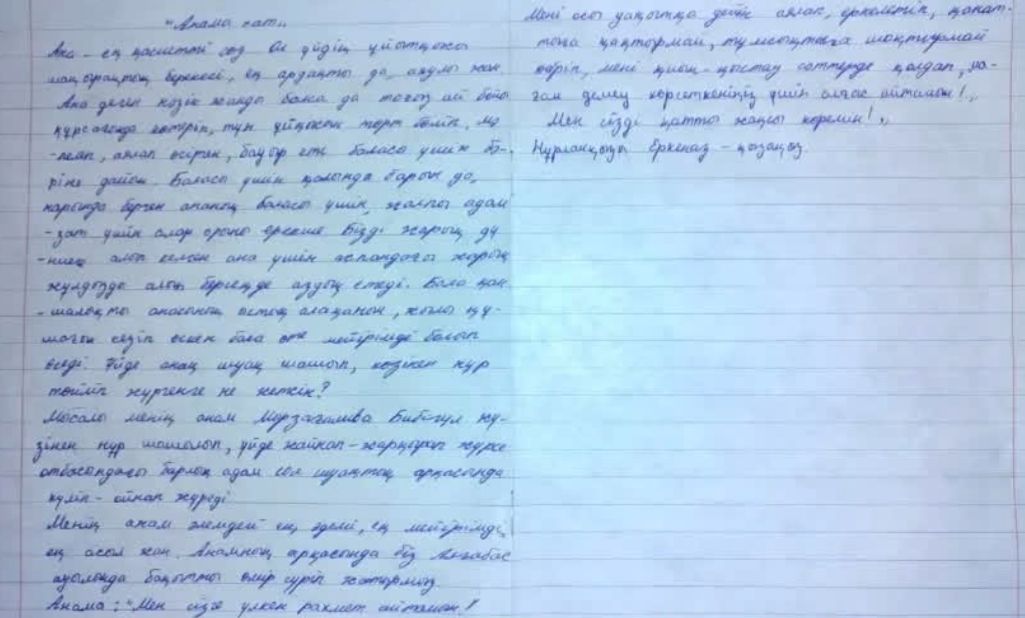 "Анама хат"
Ана - ең қасиетті сөз Ол үйдің ұйытқысы
шаңырақтың берекесі, ең ардақты да, аяулы жан.
Ана деген нәзік жанды болса да тоғыз ай бойы
құрсағында көтеріп, түн ұйқысын төрт бөліп, мә
-пелеп, аялап өсірген, бауыр еті баласы үшін бә-
ріне дайын. Баласы үшін қолында барын да,
жарында берген ананың баласы үшін, жалпы адам
-зат үшін алар орны ерекше Бізді жарық дү
-ниеге алып келген ана үшін аспандағы жарық
жұлдызды алып бергенде аздық етеді. Бала қан
-шалықты анасының ыстық алақанын, жылы құ-
шағын сезіп өскен бала өте мейірімді болып
өседі. Үйде анаң шуақ шашып, көзінен нұр
төгіліп жүргенге не жетсін?
Мысалы менің анам Мырзағалиева Бибігүл жү-
зінен нұр шашылып, үйде жайнап-жарқырап жүрсе
отбасындағы барлық адам сол шуақтың арқасында
күліп-ойнап жүреді
Менің анам әлемдегі ең әдемі, ең мейірімді,
ең асыл жан. Анамның арқасында біз Алғабас
ауылында бақытты өмір сүріп жатырмыз.
Анама: "Мен сізге үлкен рахмет айтамын!
Мені осы уақытқа дейін аялап, еркелетіп, қанат-
тыға қақтырмай, тұмсықтыға шоқтырмай
өсіріп, мені қиын-қыстау сәттерде қолдап, ма-
ған демеу көрсеткеніңіз үшін алғыс айтамын!"
Мен сізді қатты жақсы көремін!"
Нұрланқызы Еркеназ - қызыңыз.